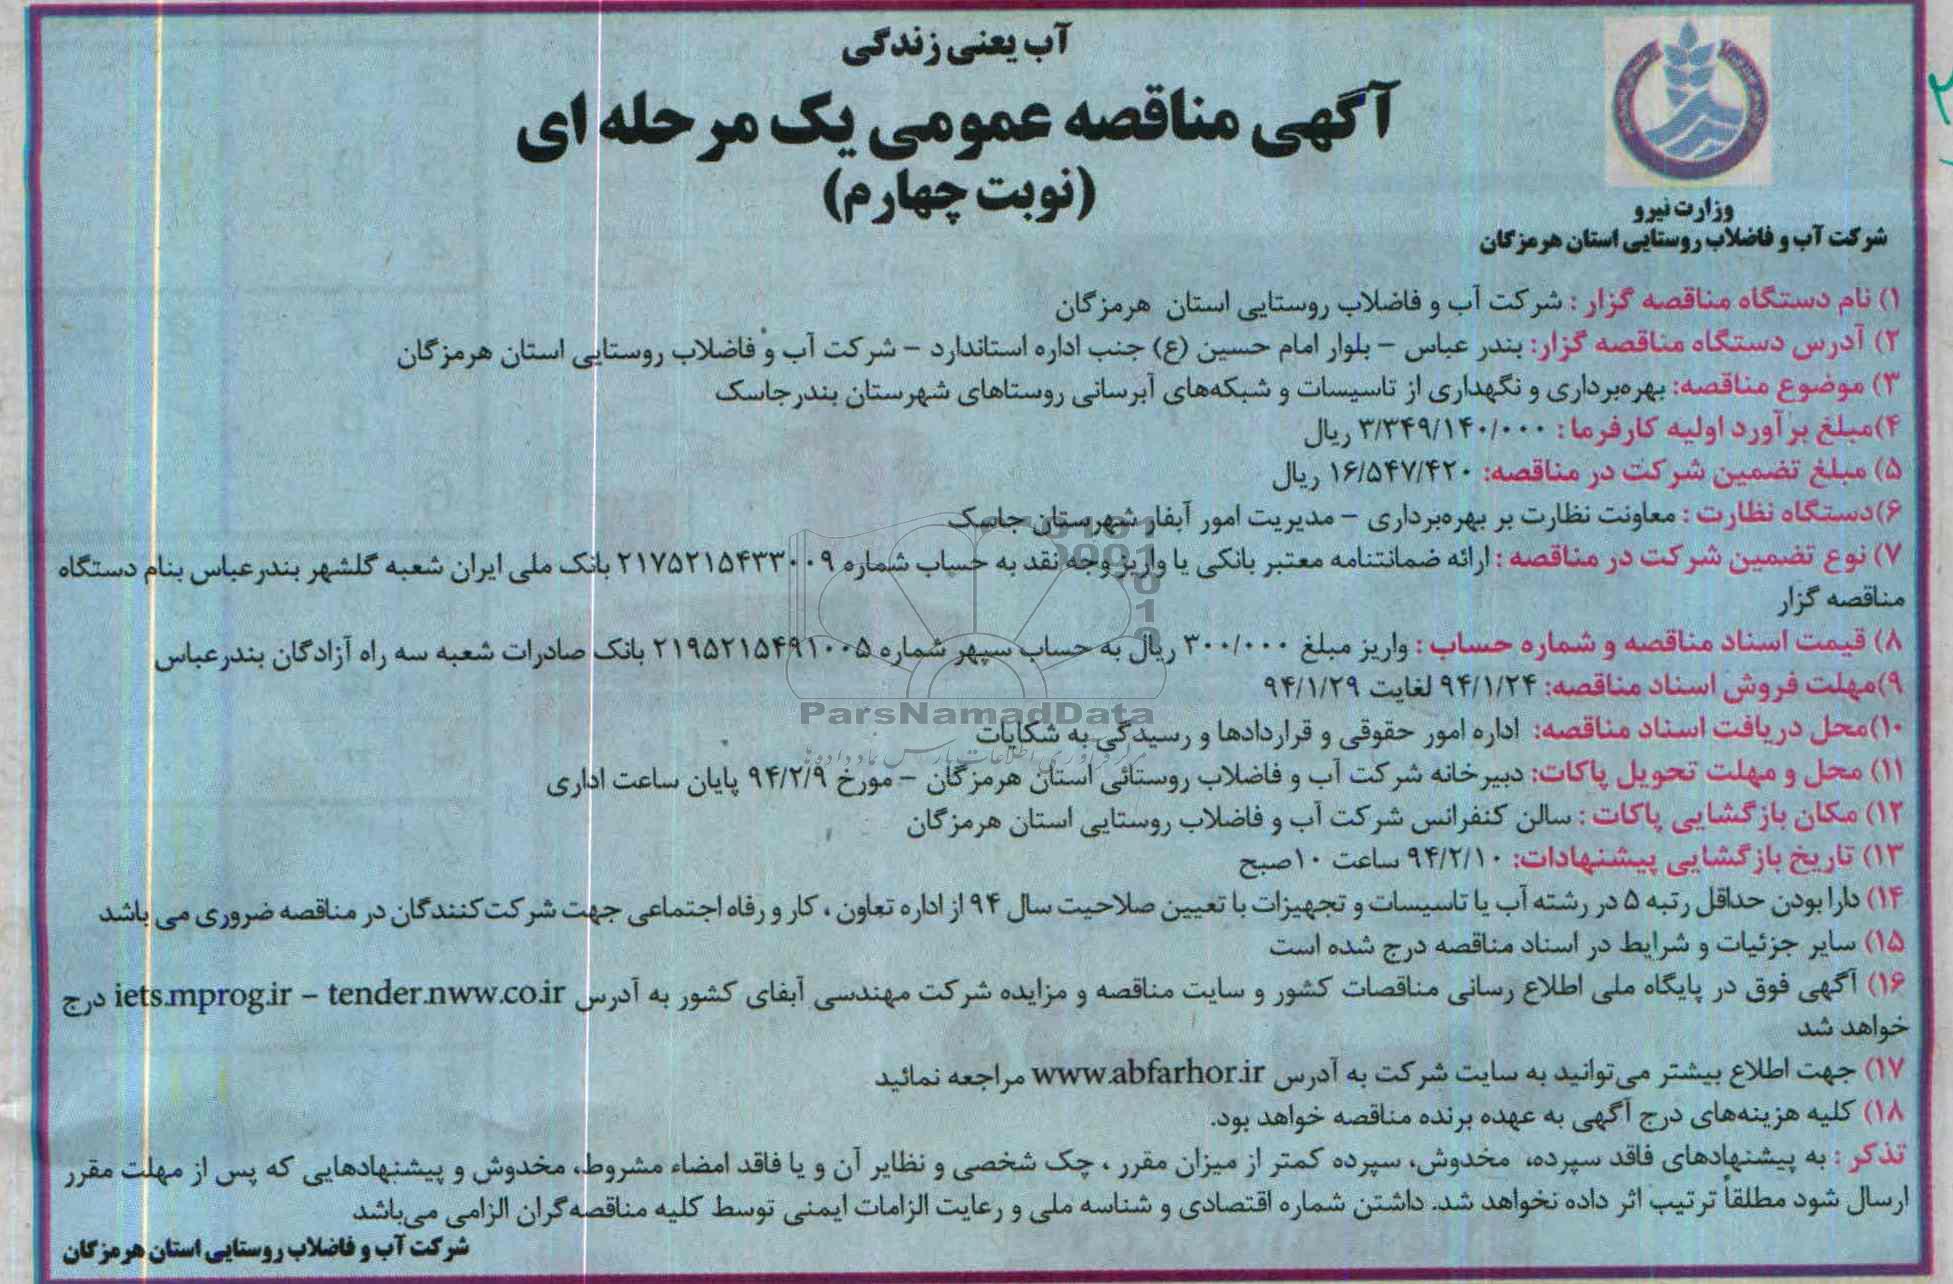 آب یعنی زندگی
آگهی مناقصه عمومی یک مرحله ای
(نوبت چهارم)
وزارت نیرو
شرکت آب و فاضلاب روستایی استان هرمزگان
۱) نام دستگاه مناقصه گزار : شرکت آب و فاضلاب روستایی استان هرمزگان
۲) آدرس دستگاه مناقصه گزار: بندر عباس – بلوار امام حسین (ع) جنب اداره استاندارد – شرکت آب و فاضلاب روستایی استان هرمزگان
۳) موضوع مناقصه: بهره‌برداری و نگهداری از تاسیسات و شبکه‌های آبرسانی روستاهای شهرستان بندرجاسک
۴)مبلغ برآورد اولیه کارفرما : ۳/۳۴۹/۱۴۰/۰۰۰ ریال
۵) مبلغ تضمین شرکت در مناقصه: ۱۶/۵۴۷/۴۲۰ ریال
۶)دستگاه نظارت : معاونت نظارت بر بهره‌برداری – مدیریت امور آبفار شهرستان جاسک
۷) نوع تضمین شرکت در مناقصه : ارائه ضمانتنامه معتبر بانکی یا واریز وجه نقد به حساب شماره ۲۱۷۵۲۱۵۴۳۳۰۰۹ بانک ملی ایران شعبه گلشهر بندرعباس بنام دستگاه
مناقصه گزار
۸) قیمت اسناد مناقصه و شماره حساب : واریز مبلغ ۳۰۰/۰۰۰ ریال به حساب سپهر شماره ۲۱۹۵۲۱۵۴۹۱۰۰۵ بانک صادرات شعبه سه راه آزادگان بندرعباس
۹)مهلت فروش اسناد مناقصه: ۹۴/۱/۲۴ لغایت ۹۴/۱/۲۹
ParsNamadData
۱۰)محل دریافت اسناد مناقصه: اداره امور حقوقی و قراردادها و رسیدگی به شکایات
۱۱) محل و مهلت تحویل پاکات: دبیرخانه شرکت آب و فاضلاب روستائی استان هرمزگان – مورخ ۹۴/۲/۹ پایان ساعت اداری
۱۲) مکان بازگشایی پاکات : سالن کنفرانس شرکت آب و فاضلاب روستایی استان هرمزگان
۱۳) تاریخ بازگشایی پیشنهادات: ۹۴/۲/۱۰ ساعت ۱۰صبح
۱۴) دارا بودن حداقل رتبه ۵ در رشته آب یا تاسیسات و تجهیزات با تعیین صلاحیت سال ۹۴ از اداره تعاون ، کار و رفاه اجتماعی جهت شرکت‌کنندگان در مناقصه ضروری می باشد
۱۵) سایر جزئیات و شرایط در اسناد مناقصه درج شده است
۱۶) آگهی فوق در پایگاه ملی اطلاع رسانی مناقصات کشور و سایت مناقصه و مزایده شرکت مهندسی آبفای کشور به آدرس iets.mprog.ir – tender.nww.co.ir درج
خواهد شد
۱۷) جهت اطلاع بیشتر می‌توانید به سایت شرکت به آدرس www.abfarhor.ir مراجعه نمائید
۱۸) کلیه هزینه‌های درج آگهی به عهده برنده مناقصه خواهد بود.
تذکر : به پیشنهادهای فاقد سپرده، مخدوش، سپرده کمتر از میزان مقرر ، چک شخصی و نظایر آن و یا فاقد امضاء مشروط، مخدوش و پیشنهادهایی که پس از مهلت مقرر
ارسال شود مطلقاً ترتیب اثر داده نخواهد شد. داشتن شماره اقتصادی و شناسه ملی و رعایت الزامات ایمنی توسط کلیه مناقصه‌گران الزامی می‌باشد
شرکت آب و فاضلاب روستایی استان هرمزگان